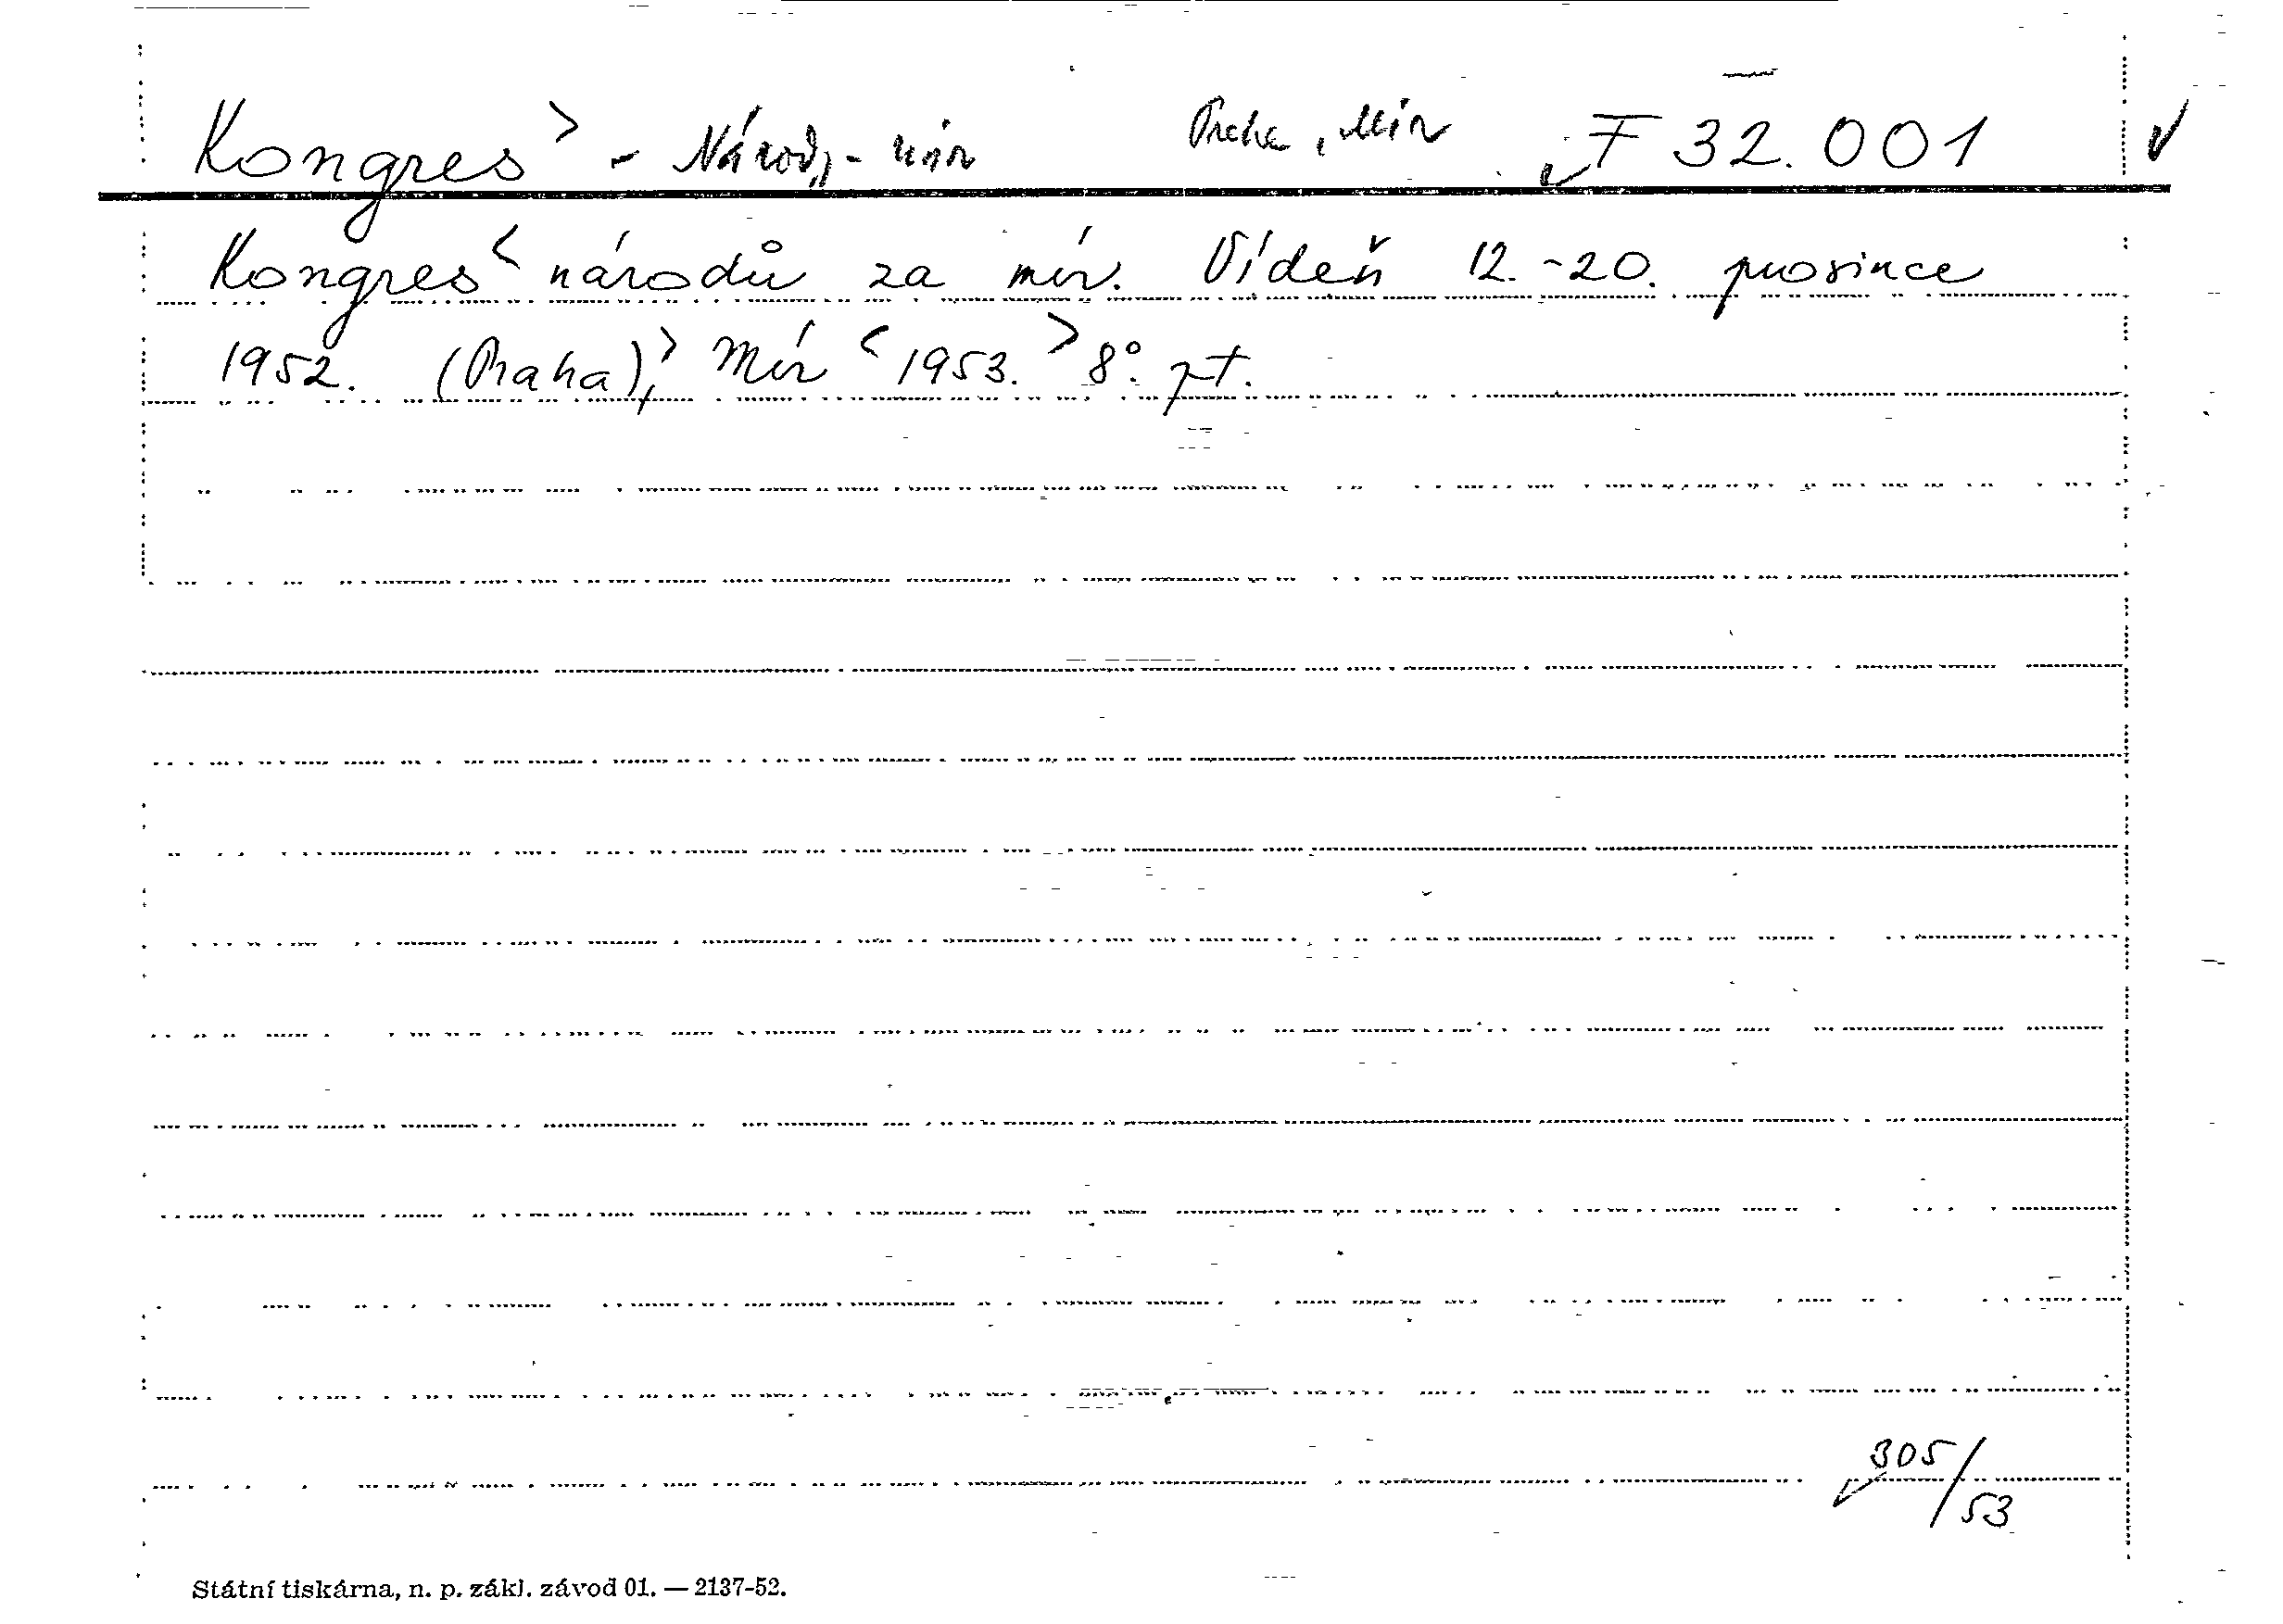 Kongres > - Národ, - mír Praha, Mír F 32.001
Kongres < národů za mír. Vídeň 12.-20. prosince
1952. (Praha), > Mír < 1953. > 8°. pt.
305/53
Státní tiskárna, n. p. zákl. závod 01. — 2137-52.